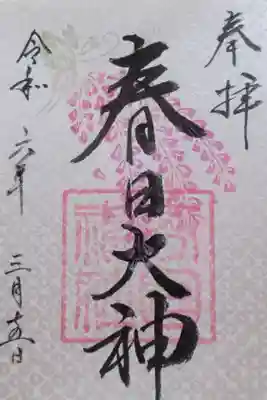 奉拝
春日大神
令和六年三月十五日